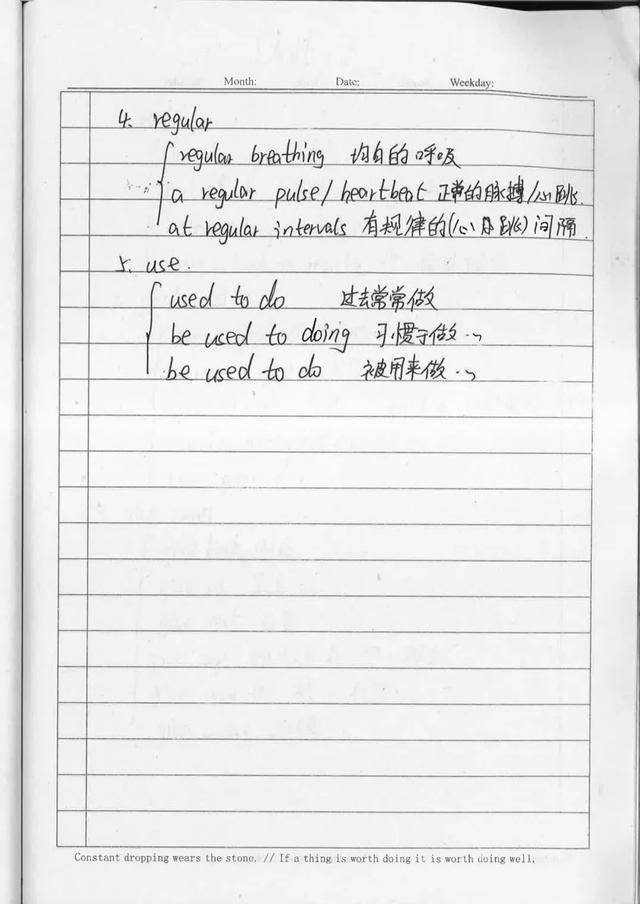 Month: Date: Weekday:
4. regular
regular breathing 均匀的呼吸
a regular pulse/heartbeat 正常的脉搏/心跳
at regular intervals 有规律的(心跳)间隔
5. use.
used to do 过去常常做
be used to doing 习惯于做...
be used to do 被用来做...
Constant dropping wears the stone. // If a thing is worth doing it is worth doing well.